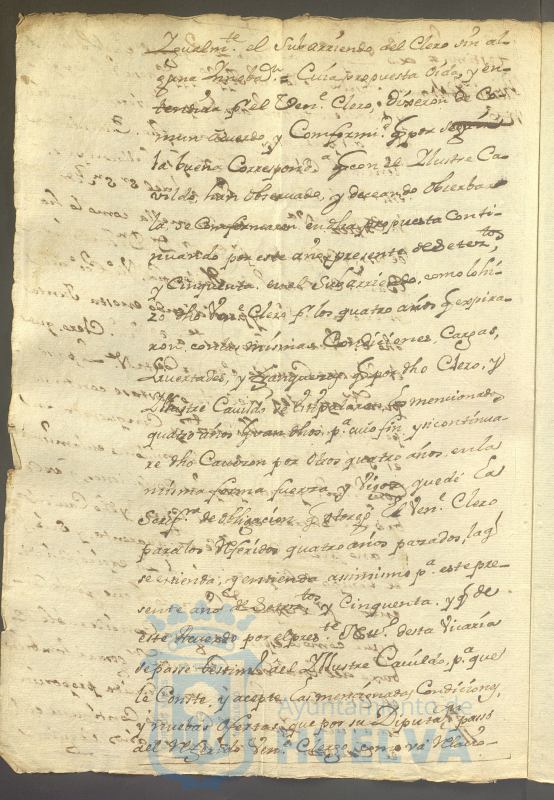 el Subarriendo del Clero sin al-
guna
tendida pr. el Vene. Clero, Dixeron de Co-
mun Acuerdo, y Conformid. q. por seguir
la buena Correspond.a q. con el Yllustre Ca-
vildo, han Observado, y deseando Observar-
la, se Conformaron en dha propuesta Conti-
nuando por este año presente de setez.tos
y Cinquenta en el Subarriendo, como lo hi-
zo dho Vene. Clero pr. los quatro años q. expira-
ron, con las mismas Condiciones, Cargas,
y q. por dho Clero, y
Yllustre Cavildo se estipularon los mencionados
quatro años
re dho Cavildo por otros quatro años, en la
misma forma, fuerza, y Vigor, quede la
Scrip.ra de obligacion q. otorgo el Vene. Clero
para los referidos quatro años pasados, la q.
se estienda, y entienda asimismo p.a este pre-
sente año de Setez.tos y Cinquenta, y q. de
este Acuerdo por el pres.te Not.o desta Vicaría
se passe testimo. al Yllustre Cavildo, p.a que
le Conste, y acepte las mencionadas Condiciones,
y nuevas Ofertas, que por su Diputas.n passo
del Vene. Clero, como va
Ayuntamiento de
HUELVA